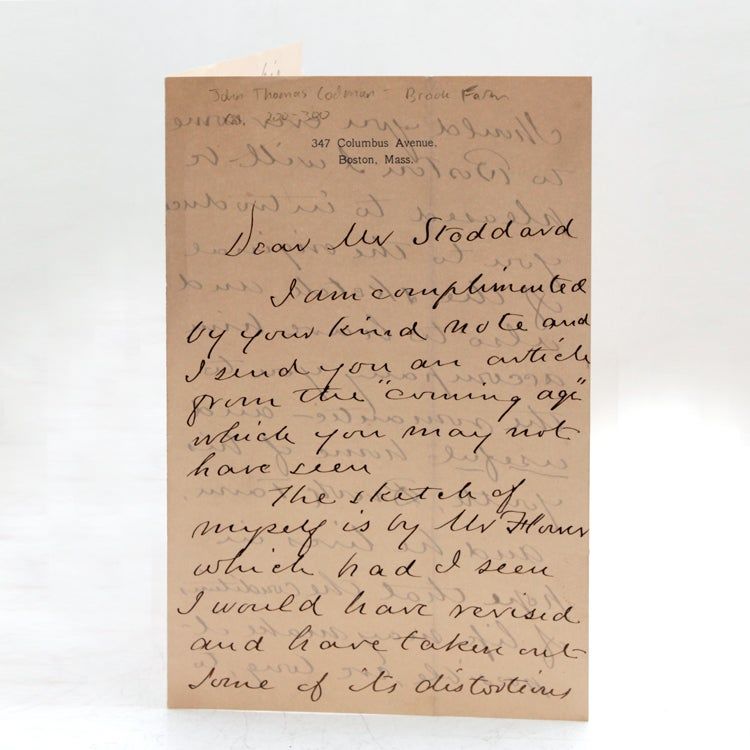 John Thomas Codman - Brook Farm
200-300
347 Columbus Avenue.
Boston, Mass.
Dear Mr Stoddard
I am complimented
by your kind note and
I send you an article
from the "coming age"
which you may not
have seen
The sketch of
myself is by Mr Flower
which had I seen
I would have revised
and have taken out
some of its distortions